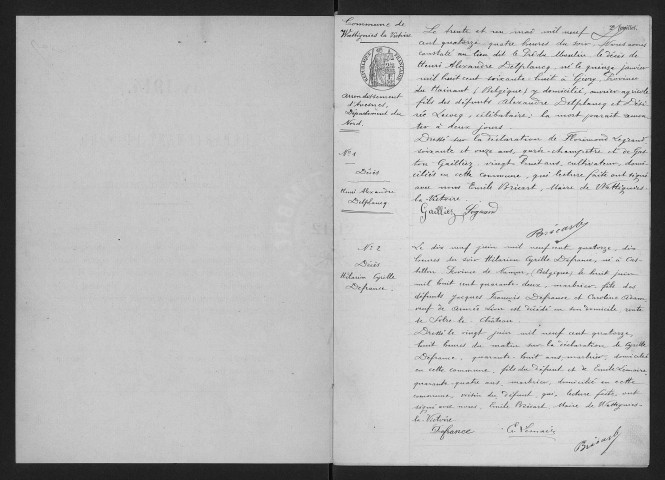 2e feuillet
Commune de
Wattignies la Victoire
arrondissement
d'Avesnes,
Département du
Nord.
Le trente et un mai mil neuf
cent quatorze quatre heures du soir Nous avons
constaté au lieu dit le Pied du Moulin le décès de
Henri Alexandre Delplancq, né le quinze janvier
mil huit cent soixante huit à Givry, Province
du Hainaut (Belgique) y domicilié, ouvrier agricole
fils des défunts Alexandre Delplancq et Désirée
Lecocq, célibataire; la mort paraît remonter
à deux jours.
N° 1
Décès
Henri Alexandre
Delplancq
Dressé sur la déclaration de Florimond Legrand
soixante et onze ans, garde-champêtre et de Gaston
Gailliez, vingt huit ans, cultivateur, domiciliés
en cette commune, qui lecture faite ont signé
avec nous Emile Bricart, Maire de Wattignies-
la-Victoire.
Gailliez Legrand
Bricart
N° 2
Décès
Hilarion Cyrille
Defrance.
Le dix neuf juin mil neuf cent quatorze, dix
heures du soir Hilarion Cyrille Defrance, né à
Province de Namur, (Belgique) le huit juin
mil huit cent quarante-deux, marbrier, fils des
défunts Jacques François Defrance et Caroline Adam,
veuf de est décédé en son domicile route
de Solre-le-Château.
Dressé le vingt juin mil neuf cent quatorze,
huit heures du matin sur la déclaration de Cyrille
Defrance, quarante-huit ans, marbrier, domicilié
en cette commune, fils du défunt et de Emile Lemaire,
quarante-quatre ans, marbrier, domicilié en cette
commune, voisin du défunt, qui, lecture faite, ont
signé avec nous, Emile Bricart Maire de Wattignies-
la-Victoire
Defrance E. Lemaire
Bricart